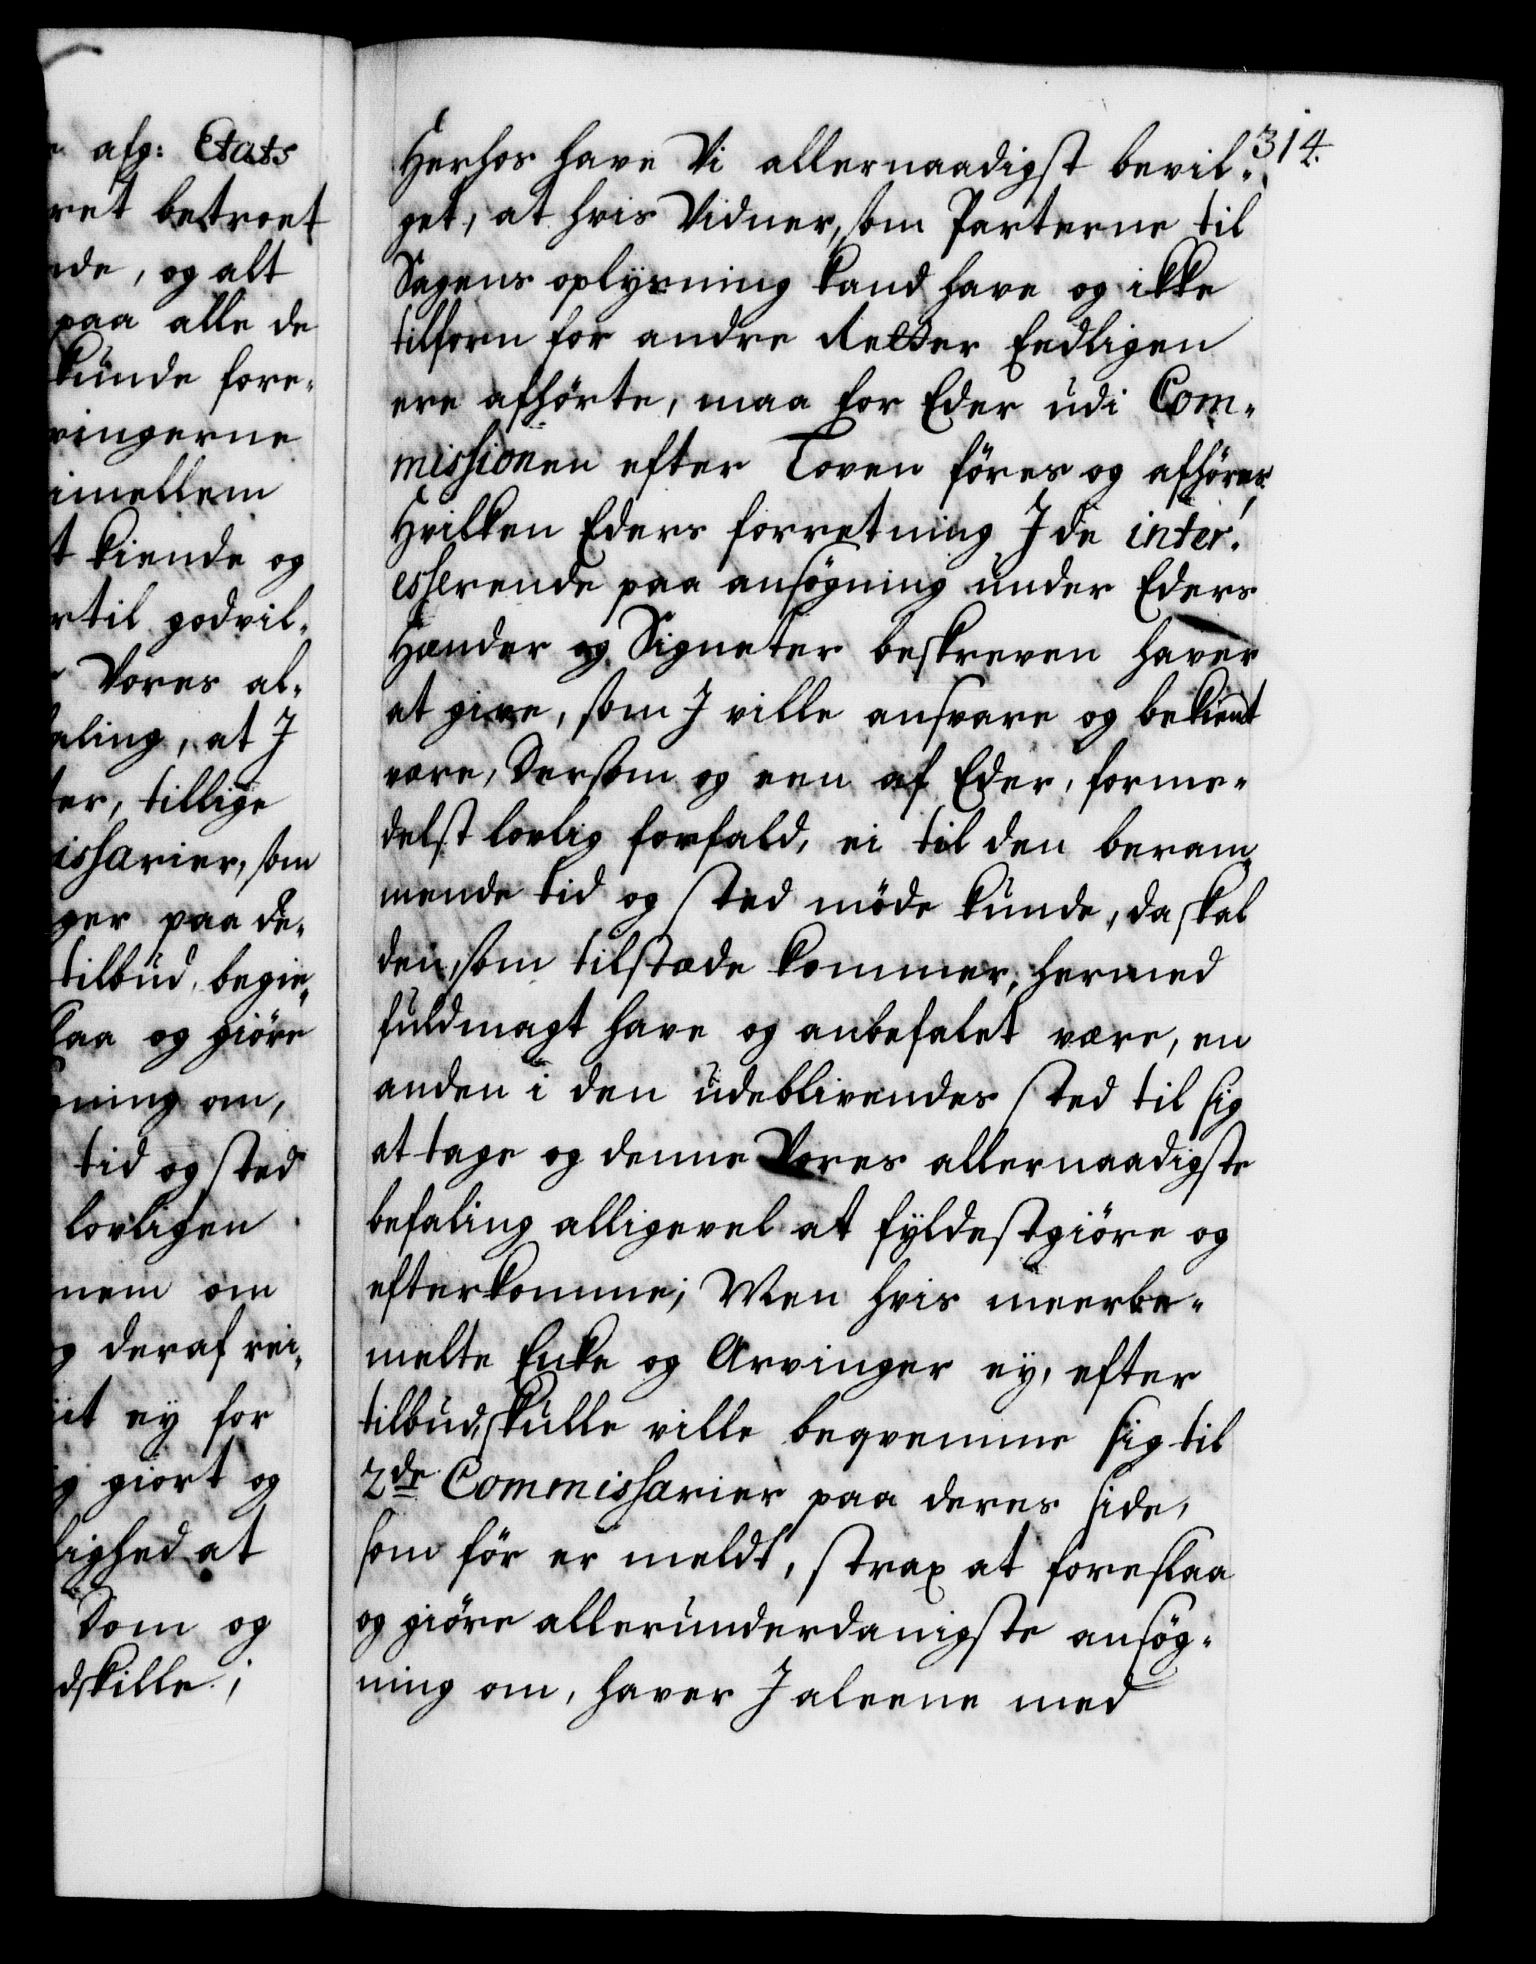 afg: Etats
ret betroet
nde, og alt
paa alle de
kunde fore-
vingerne
imellem
t kiende og
rtil godvil-
Vores al-
aling, at J
ter, tillige
issarier, som
ger paa de-
tilbud, begie-
laa og giöre
ning om,
tid og sted
lovligen
nem om
g deraf rei-
iit ey for
g giort og
lighed at
Dom og
dskille;
314.
Herhos have Vi allernaadigst bevil-
get, at hvis Vidner, som Parterne til
Sagens oplysning kand have og ikke
tilforn for andre Retter Eedligen
ere afhörte, maa for Eder udi Com-
missionen efter Loven föres og afhöres,
Hvilken Eders forretning J de inter-
esserende paa ansögning under Eders
Hænder og Signeter beskreven haver
at give, som J ville ansvare og bekient
være, Dersom og een af Eder, forme-
delst lovlig forfald, ei til den beram-
mende tid og sted möde kunde, da skal
den, som tilstæde kommer, hermed
fuldmagt have og anbefalet være, en
anden i den udeblivendes sted til sig
at tage og denne Vores allernaadigste
befaling alligevel at fyldestgiöre og
efterkomme; Men hvis meerbe-
melte Enke og Arvinger ey, efter
tilbud, skulle ville beqvemme sig til
2de Commissarier paa deres side,
som för er meldt, strax at foreslaa
og giöre allerunderdanigste ansög-
ning om, haver J aleene med